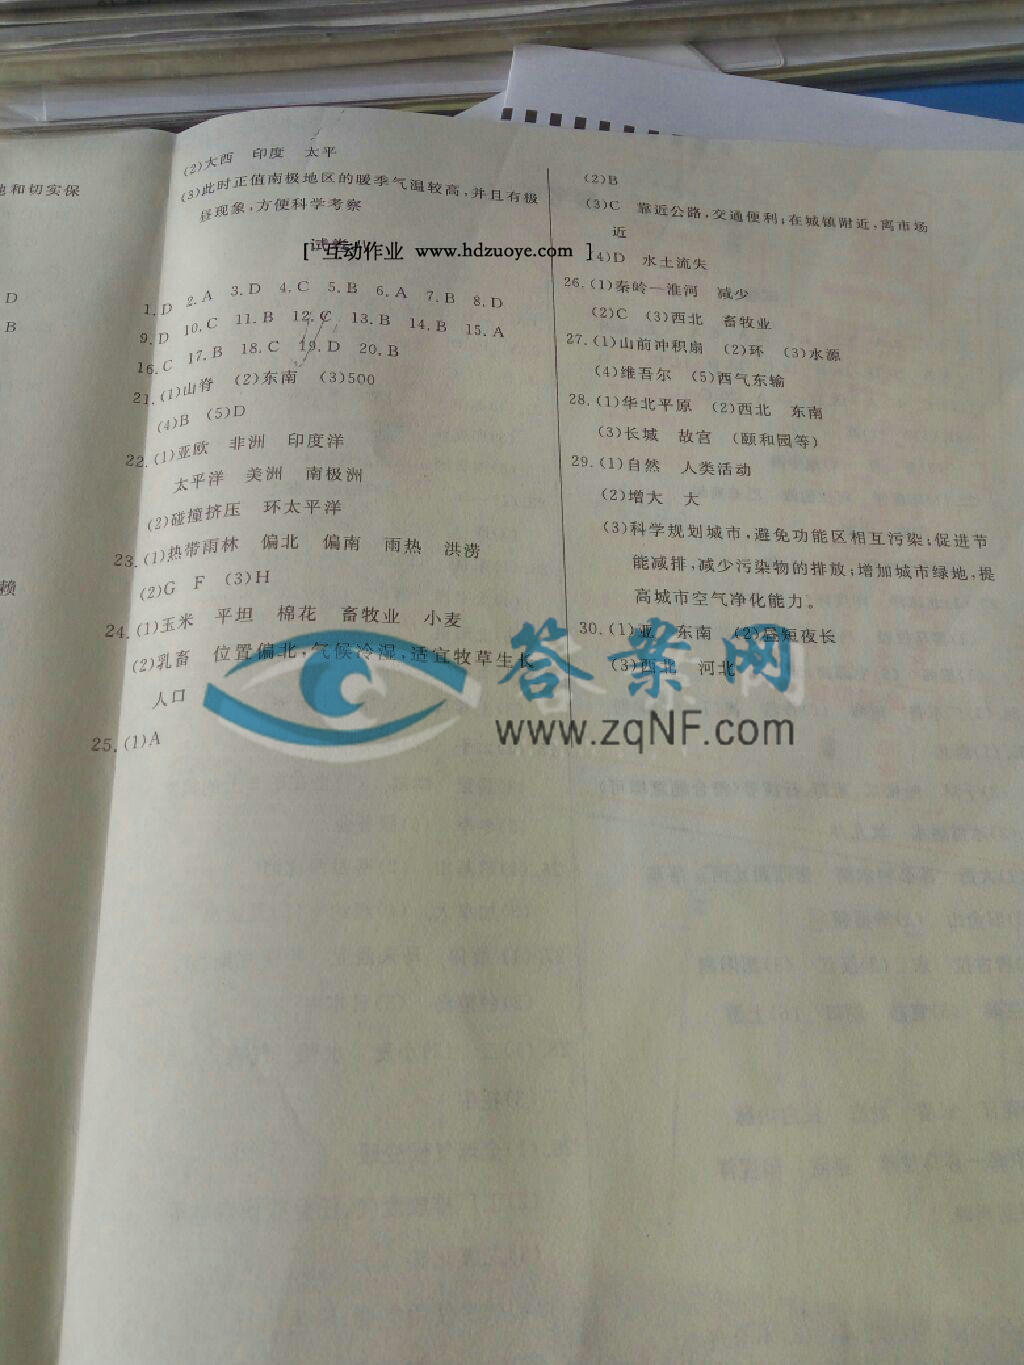 地和切实保
D
B
赖
(2)大西 印度 太平
(3)此时正值南极地区的暖季气温较高,并且有极
昼现象,方便科学考察
试卷
[ 互动作业 www.hdzuoye.com ]
1.D 2.A 3.D 4.C 5.B 6.A 7.B 8.D
9.D 10.C 11.B 12.C 13.B 14.B 15.A
16.C 17.B 18.C 19.D 20.B
21.(1)山脊 (2)东南 (3)500
(4)B (5)D
22.(1)亚欧 非洲 印度洋
太平洋 美洲 南极洲
(2)碰撞挤压 环太平洋
23.(1)热带雨林 偏北 偏南 雨热 洪涝
(2)G F (3)H
24.(1)玉米 平坦 棉花 畜牧业 小麦
(2)乳畜 位置偏北,气候冷湿,适宜牧草生长
人口
25.(1)A
(2)B
(3)C 靠近公路,交通便利;在城镇附近,离市场
近
(4)D 水土流失
26.(1)秦岭—淮河 减少
(2)C (3)西北 畜牧业
27.(1)山前冲积扇 (2)环 (3)水源
(4)维吾尔 (5)西气东输
28.(1)华北平原 (2)西北 东南
(3)长城 故宫 (颐和园等)
29.(1)自然 人类活动
(2)增大 大
(3)科学规划城市,避免功能区相互污染;促进节
能减排,减少污染物的排放;增加城市绿地,提
高城市空气净化能力。
30.(1)亚 东南 (2)昼短夜长
(3)西北 河北
答案网
www.zqNF.com